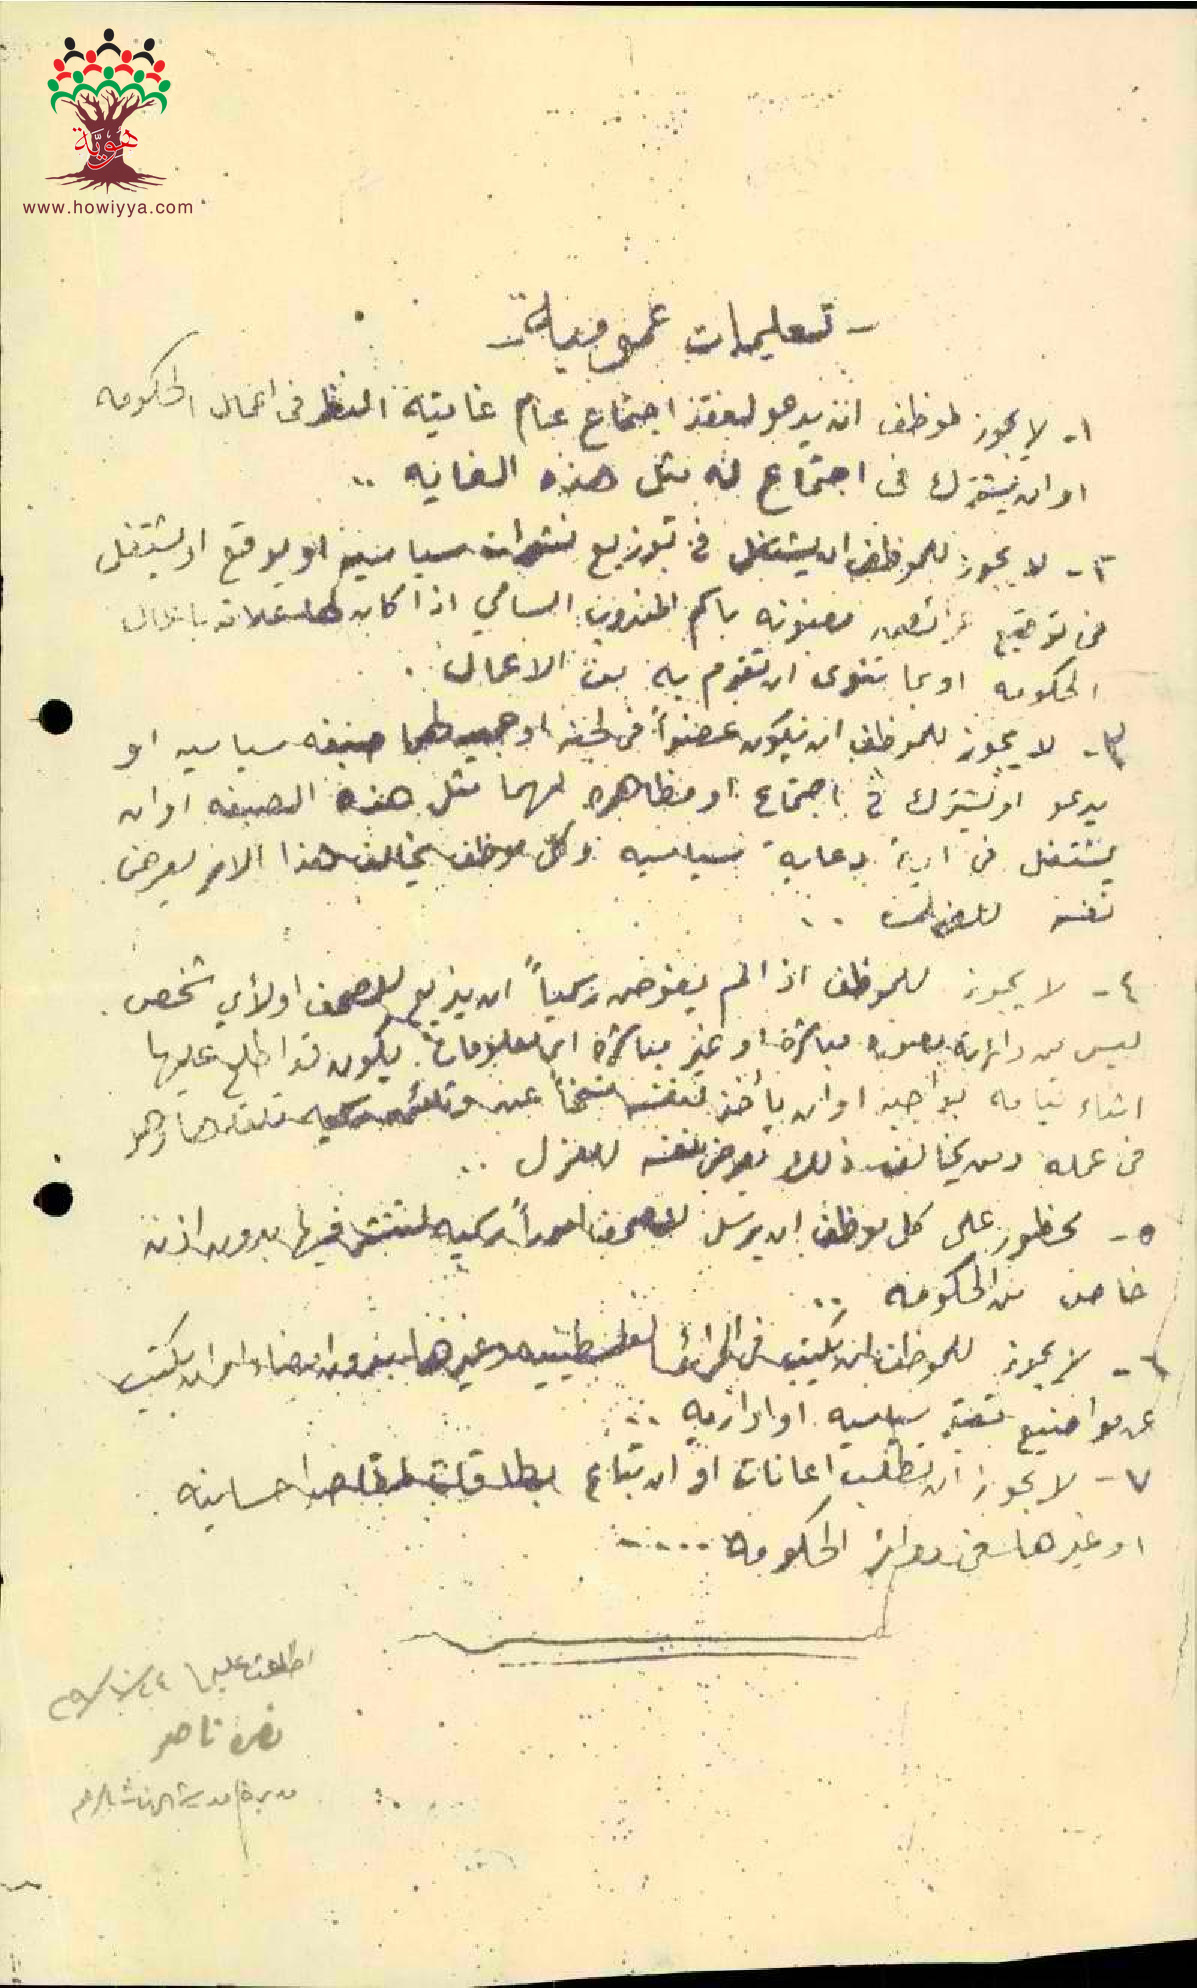 هوية
www.howiyya.com
- تعليمات عمومية -
١- لا يجوز لموظف ان يدعو لعقد اجتماع عام غايته النظر في اعمال الحكومه
او ان يشترك في اجتماع له مثل هذه الغايه ..
٢- لا يجوز للموظف ان يشتغل في توزيع نشرات سياسيه او يوقع او يشتغل
في توقيع عرائض معنونه باسم المندوب السامي اذا كان لها علاقه باعمال
الحكومه او بما تنوى ان تقوم به من الاعمال .
٣- لا يجوز للموظف ان يكون عضواً في لجنه او جمعيه لهما صبغه سياسيه او
يدعو او يشترك في اجتماع او مظاهره لهما مثل هذه الصبغه او ان
يشتغل في اية دعاية سياسيه وكل موظف يخالف هذا الامر يعرض
نفسه للعزل ..
٤- لا يجوز للموظف اذا لم يفوض رسمياً ان يذيع للصحف او لأي شخص
ليس من دائرته بصوره مباشرة او غير مباشرة اي معلومات يكون قد اطلع عليها
اثناء قيامه بواجبه او ان يأخذ لنفسه نسخاً عن وثائق رسميه تلقاها وهو
في عمله ومن يخالف ذلك يعرض نفسه للعزل ..
٥- محظور على كل موظف ان يرسل للصحف اموراً رسميه لتنشر فيها بدون اذن
خاص من الحكومه ..
٦- لا يجوز للموظف ان يكتب في الجرائد الفلسطينيه وغيرها بدون امضاء او ان يكتب
عن مواضيع سياسيه او اداريه ..
٧- لا يجوز ان تطلب اعانات او ان تباع بطاقات لمقاصد احسانيه
او غيرها في دوائر الحكومه .....
اطلعت عليها
ناصر
مديرة مدرسة البنات